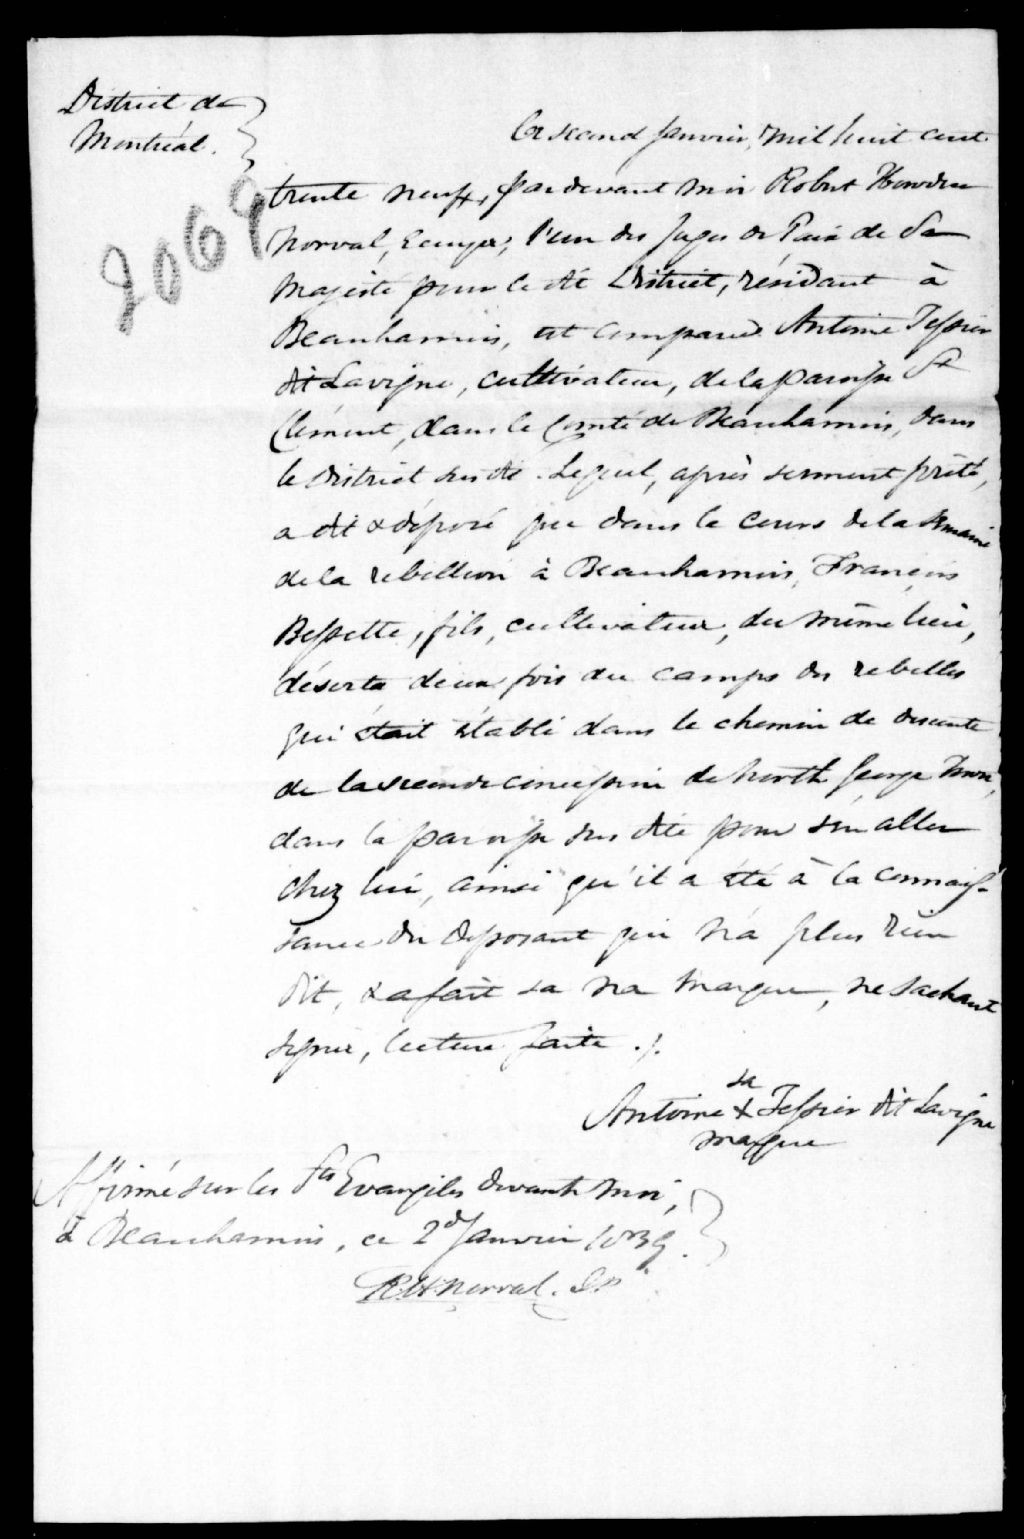 District de
Montréal.
2069
Ce second Janvier, mil huit cent
trente neuf, par devant moi Robert Howden
Norval, Ecuyer, l'un des Juges de Paix de Sa
Majesté pour le dit District, résidant à
Beauharnois, est comparu Antoine Tessier
dit Lavigne, cultivateur, de la paroisse St
Clément, dans le Comté de Beauharnois, dans
le District sus dit. Lequel, après serment prêté,
a dit & déposé que dans le cours de la Semaine
de la rebellion à Beauharnois, François
Bessette, fils, cultivateur, du même lieu,
déserta deux fois du camps des rebelles
qui était établi dans le chemin de descente
de la seconde concession de North George Town,
dans la paroisse sus dite pour s'en aller
chez lui, ainsi qu'il a été à la connais-
sance du déposant qui n'a plus rien
dit, & a fait sa marque, ne sachant
signer, lecture faite ./.
sa
Antoine + Tessier dit Lavigne
marque
Affirmé sur les Sts Evangiles devant moi,
à Beauharnois, ce 2d Janvier 1839.
RH Norval. J.P.